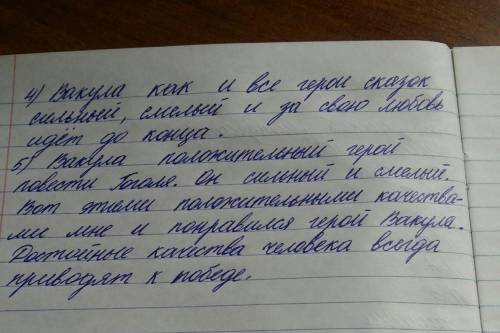 4) Вакула как и все герои сказок
сильный, смелый и за свою любовь
идёт до конца.
5) Вакула положительный герой
повести Гоголя. Он сильный и смелый.
Вот этими положительными качества-
ми мне и понравился герой Вакула.
Достойные качества человека всегда
приводят к победе.